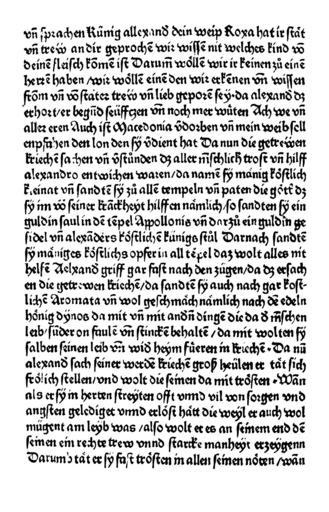 vn̄ sprachen Künig allexand̕ dein weip Roxa hat ir stät
vn̄ trew an dir geprochē wir wissē nit welches kind vō
deinē fleisch kōmē ist Darum̄ wöllē wir ir keinen zů einē
herrē haben / wir wöllē einē den wir erkēnen vn̄ wissen
from̄ vn̄ vō stāter trew vn̄ lieb geporē sey · da alexand̕ dz
erhort / er begūd seüfftzen vn̄ noch mer wůten Ach we vn̄
aller eren Auch ist Macedonia v̕dorben vn̄ mein weib sol
enpfahen den lon den sy v̕dient hat Da nun die getrewen
kriechē sahen vn̄ v̕stůnden dz aller mēschlich trost vn̄ hilff
alexandro entwichen waren / da namē sy mānig köstlich
kleinat vn̄ sandtē sy zů allē tempeln vn̄ paten die gött dz
sy im vō seiner krāckheyt hilffen nämlich / so sandten sy ein
guldin saul in dē tēpel Appollonis vn̄ darzů ein guldin ge
sidel vn̄ alexāders köstlichē künigs stůl Darnach sandtē
sy māniges köstlichs opfer in all tēpel daz wolt alles nit
helfē Alexand̕ griff gar fast nach den zügen / da dz ersach
en die getrewen kriechē / da sandtē sy auch nach gar kost-
lichē Aromata vn̄ wol geschmäch nämlich nach dē edeln
hönig dynos da mit vn̄ mit andn̄ dingē die da d̕ mēschen
leib / sūder on faulē vn̄ stinckē behaltē / da mit wolten sy
salben seinen leib vn̄ wid̕ heym fůeren in kriechē · Da nū
alexand̕ sach seiner werdē kriechē groß heülen er tät sich
frölich stellen / vnd wolt die seinen da mit trösten · Wān
als er sy in herten streyten offt vnnd vil von sorgen vnd
angsten gelediget vnnd erlöst hātt die weyl er auch wol
mügent am leyb was / also wolt er es an seinem end dē
seinen ein rechte trew vnnd starcke manheyt erzeygenn
Darum̄b tät er sy fast trösten in allen seinen nöten / wān